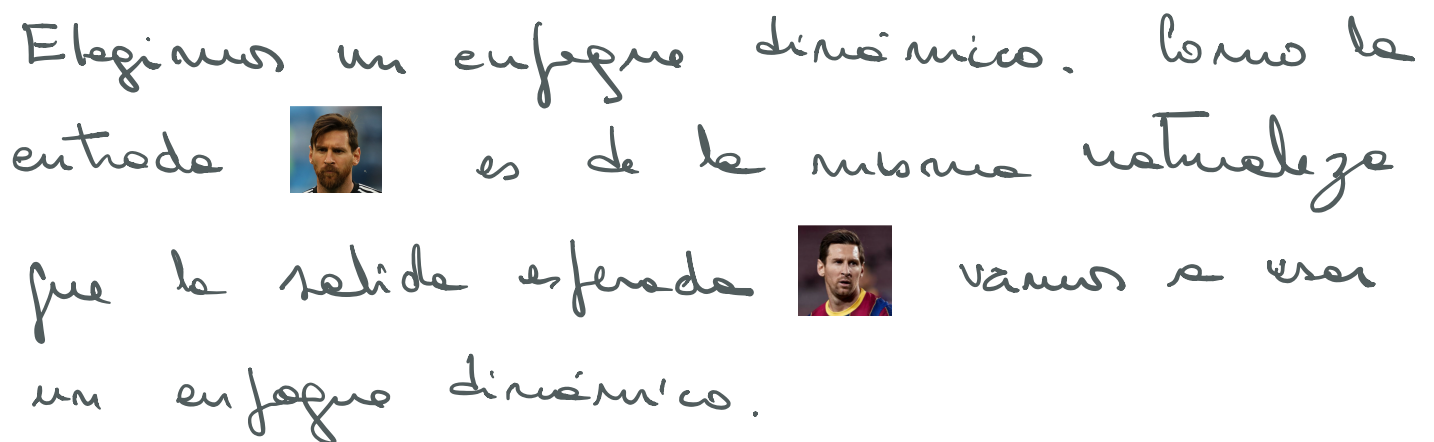 Elegimos un enfoque dinámico. Como la
entrada es de la misma naturaleza
que la salida esperada vamos a usar
un enfoque dinámico.